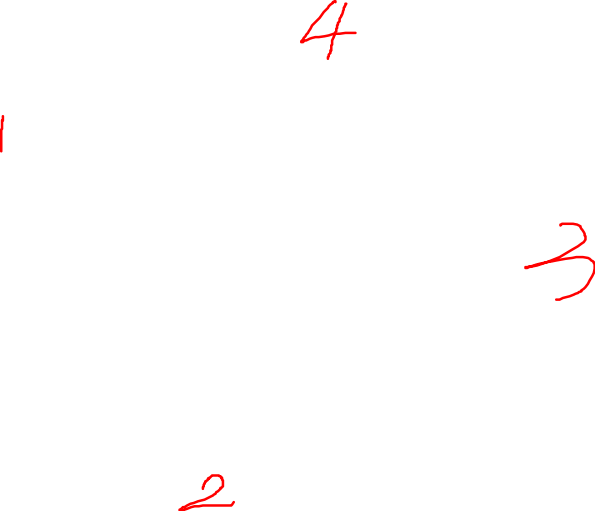 4
1
3
2